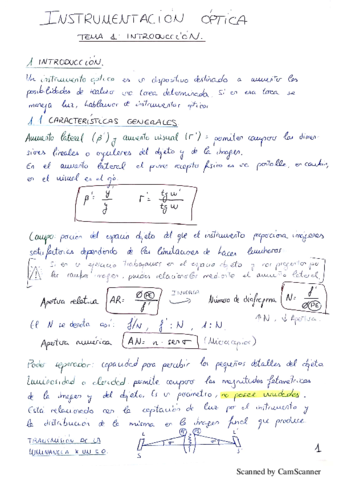 INSTRUMENTACIÓN ÓPTICA
TEMA 1: INTRODUCCIÓN.
1 INTRODUCCIÓN.
Un instrumento óptico es un dispositivo destinado a aumentar las
posibilidades de realizar una tarea determinada. Si en esa tarea se
maneja luz, hablamos de instrumentos ópticos
1.1 CARACTERÍSTICAS GENERALES
Aumento lateral (β') y aumento visual (Γ') = permiten comparar las dimen
siones lineales o angulares del objeto y de la imagen.
En el aumento lateral el plano receptor físico es una pantalla, en cambio,
en el visual es el ojo.
β' = y'/y Γ' = tg w'/tg w
Campo: porción del espacio objeto del que el instrumento proporciona imágenes
satisfactorias dependiendo de las limitaciones de haces luminosos
Apertura relativa AR = ØPE/f' Número de diafragma N = f'/ØPE
↑N, ↓Apertura
El N se denota así: f/N, f':N, 1:N.
Apertura numérica AN = n·senσ (Microscopios)
Poder separador: capacidad para percibir los pequeños detalles del objeto.
Luminosidad o claridad permite comparar las magnitudes fotométricas
de la imagen y del objeto. Es un parámetro, no posee unidades.
Está relacionado con la captación de luz por el instrumento y
la distribución de la misma en la imagen final que produce
1
Scanned by CamScanner